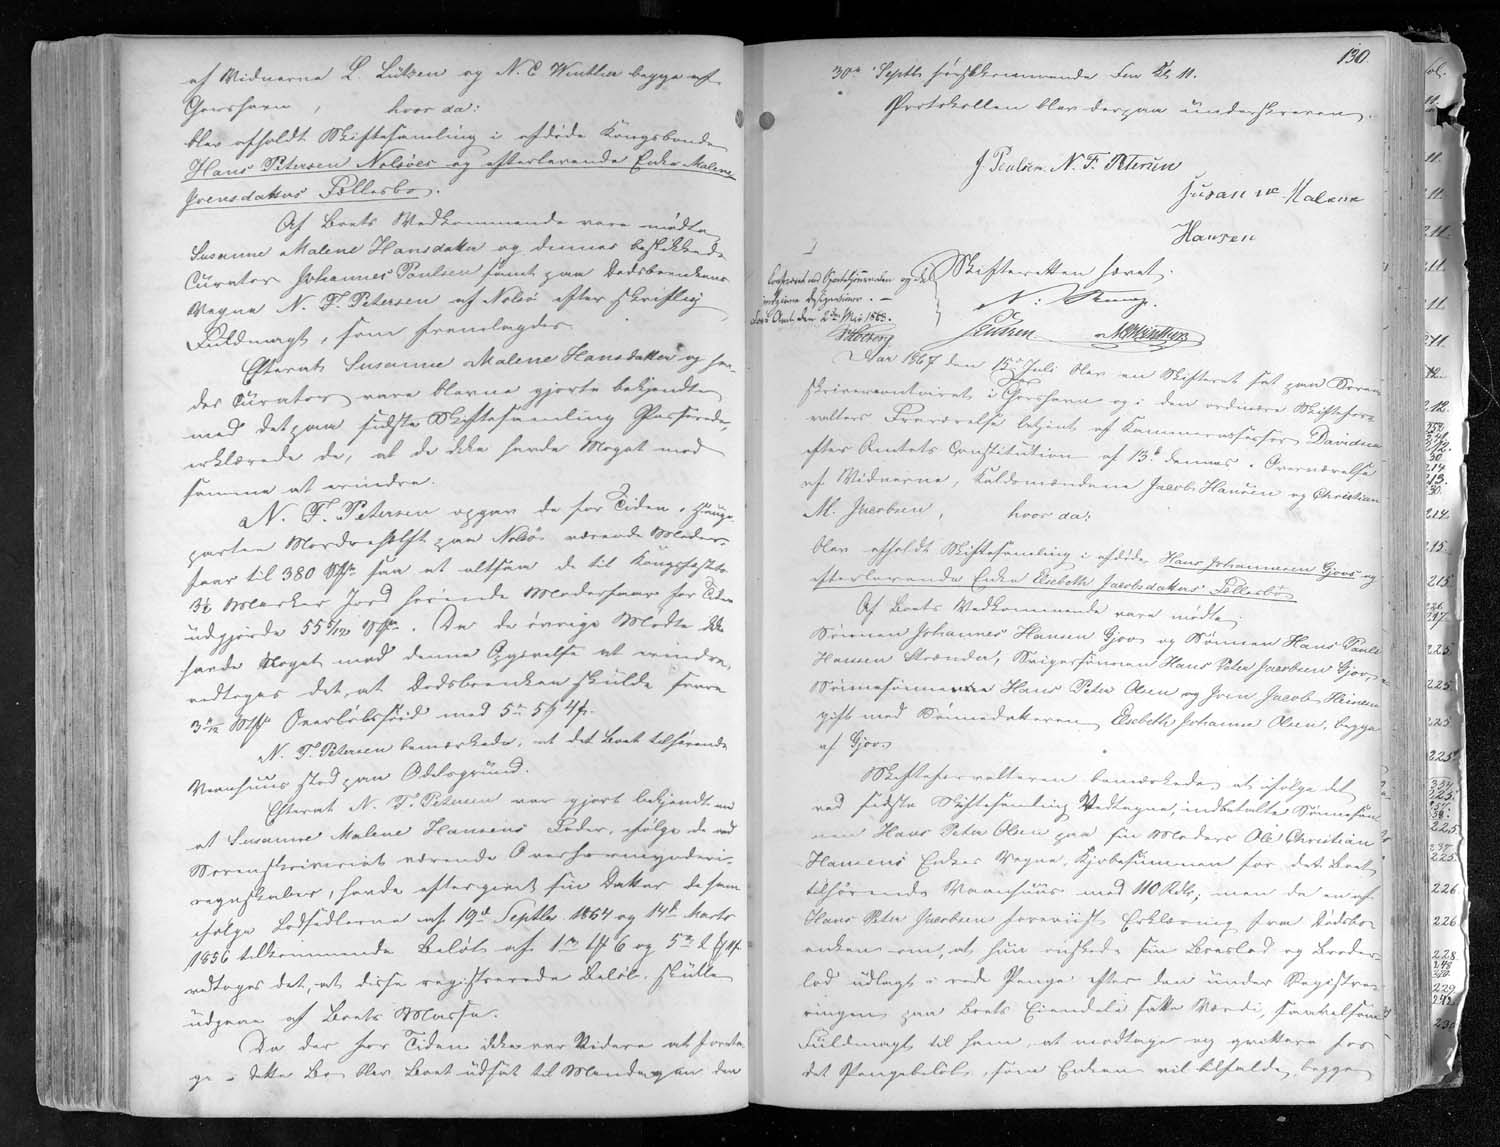 af Vidnerne L. Lützen og N. C. Winther begge af
Thorshavn, hvor da:
blev afholdt Skiftesamling i afdøde Kongsbonde
Hans Petersen Nolsøes og efterlevende Enke Malene
Joensdatters Fællesbo.
Af Boets Vedkommende vare mødte
Susanne Malene Hansdatter og dennes beskikkede
Curator Johannes Paulsen samt paa Dødsboenkens
Vegne N. F. Petersen af Nolsø efter skriftlig
Fuldmagt, som fremlagdes.
Efterat Susanne Malene Hansdatter og hen-
des Curator vare blevne gjorte bekjendte
med det paa sidste Skiftesamling Passerede,
erklærede de, at de ikke havde Noget mod
samme at erindre.
N. F. Petersen opgav de for Tiden i
parten paa Nolsø værende Moder-
faar til 380 Stk saa at altsaa de til Kongsfæstets
3½ Marker Jord hørende Moderfaar for Tiden
udgjorde 55 5/12 Stk. Da de øvrige Mødte ikke
havde Noget mod denne Opgivelse at erindre,
vedtoges det, at Dødsboenken skulde svare
3 Stk Overløbsfæ med
N. F. Petersen bemærkede, at det Boet tilhørende
Vaanhuus stod paa Odelsgrund.
Efterat N. F. Petersen var gjort bekjendt med
at Susanne Malene Hansens Fader, ifølge de ved
Sorenskriveriet værende Overformynderi-
regnskaber, havde eftergivet sin Datter de ham
ifølge Lodsedlerne af 19de Septbr. 1864 og 14de Marts
1856 tilkommende Beløb af
vedtoges det, at disse registrerede Beløb skulle
udgaae af Boets Masse.
Da der for Tiden ikke var Videre at foreta-
ge i dette Bo blev Boet udsat til Mandagen den
130.
30te Septbr. førstkommende Fm Kl. 11.
Protokollen blev derpaa underskreven.
J Poulsen N. F. Petersen
Susanne Malene
Hansen
Skifteretten hævet.
Lützen NCWinther
Aar 1867 den 15de Juli blev en Skifteret sat paa Soren-
skrivercontoiret i Thorshavn og i den ordinære Skiftefor-
valters Fraværelse betjent af Kammerassessor Davidsen
efter Amtets Constitution af 13de dennes i Overværelse
af Vidnerne, Kaldsmændene Jacob Hansen og Christian
M. Jacobsen, hvor da:
blev afholdt Skiftesamling i afdøde Hans Johannesen Gjovs og
efterlevende Enke Elsebeth Jacobsdatters Fællesbo
Af Boets Vedkommende vare mødte
Sønnen Johannes Hansen Gjov og Sønnen Hans Pauli
Hansen Strænde, Svigersønnen Hans Peter Jacobsen Gjov,
Sønnesønnerne Hans Peter Olsen og Joen Jacob Heinesen
gift med Sønnedatteren Elsebeth Johanne Olsen, begge
af Gjov.
Skifteforvalteren bemærkede, at ifølge det
ved sidste Skiftesamling Vedtagne, indbetalte Sønnesøn-
nen Hans Peter Olsen paa sin Moders Ole Christian
Hansens Enkes Vegne, Kjøbesummen for det Boet
tilhørende Vaanhuus med 110 Rdlr; men da en af
Hans Peter Jacobsen foreviist Erklæring fra Dødsbo-
enken om, at hun ønskede sin Boeslod og Broder-
lod udlagt i rede Penge efter den under Registre-
ringen paa Boets Eiendele satte Værdi, saavelsom
Fuldmagt til ham, at modtage og qvittere for
det Pengebeløb, som Enken vil tilfalde, begge